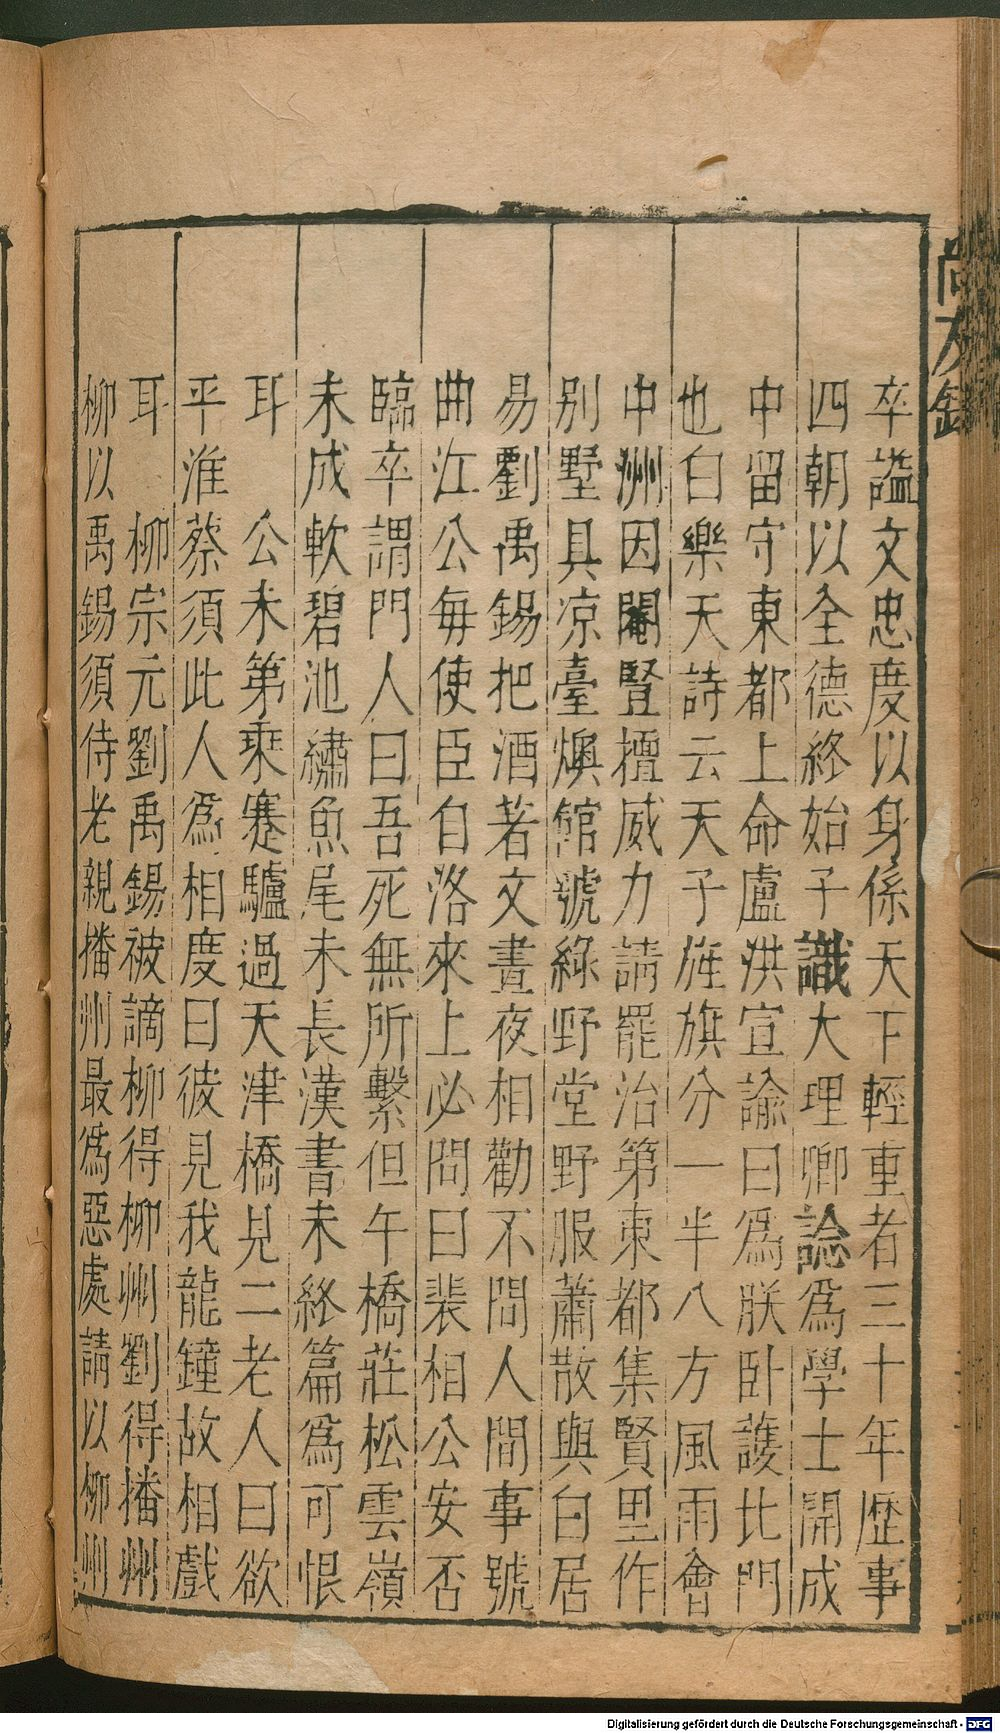 尚友錄
卒謚文忠度以身係天下輕重者三十年歷事
四朝以全德終始子識大理卿諗爲學士開成
中留守東都上命盧洪宣諭曰爲朕卧護北門
也白樂天詩云天子旌旗分一半八方風雨會
中洲因閹豎擅威力請罷治第東都集賢里作
別墅具凉臺燠館號綠野堂野服蕭散與白居
易劉禹錫把酒著文晝夜相勸不問人間事號
曲江公每使臣自洛來上必問曰裴相公安否
臨卒謂門人曰吾死無所繫但午橋莊松雲嶺
未成軟碧池繡魚尾未長漢書未終篇爲可恨
耳　公未第乘蹇驢過天津橋見二老人曰欲
平淮蔡須此人爲相度曰彼見我龍鐘故相戲
耳　柳宗元劉禹錫被謫柳得柳州劉得播州
柳以禹錫須侍老親播州最爲惡處請以柳州
Digitalisierung gefördert durch die Deutsche Forschungsgemeinschaft - DFG